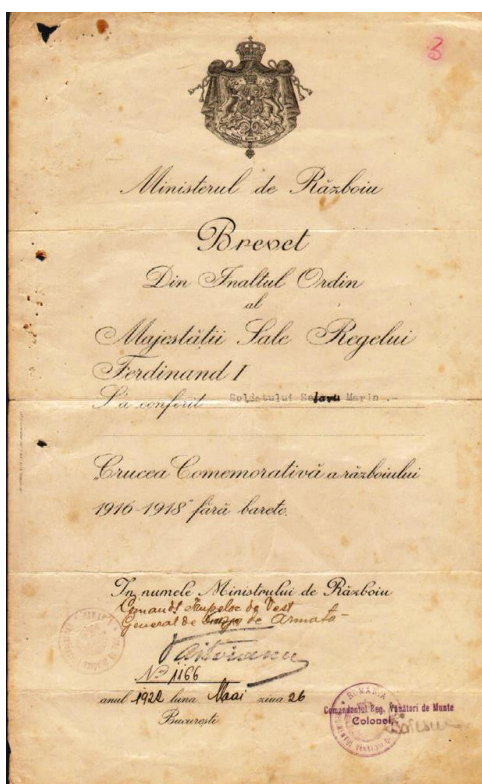 3
Ministerul de Războiu
Brevet
Din Inaltul Ordin
al
Majestății Sale Regelui
Ferdinand I
S'a conferit Soldatului Marin.-
Crucea Comemorativă a războiului
1916-1918 fără barete.
In numele Ministrului de Războiu
Comandt Trupelor de Vest
General de de Armată
No 1166
anul 1922 luna Mai ziua 26
București
Comandantul Reg. Vânători de Munte
Colonel
ROMANIA